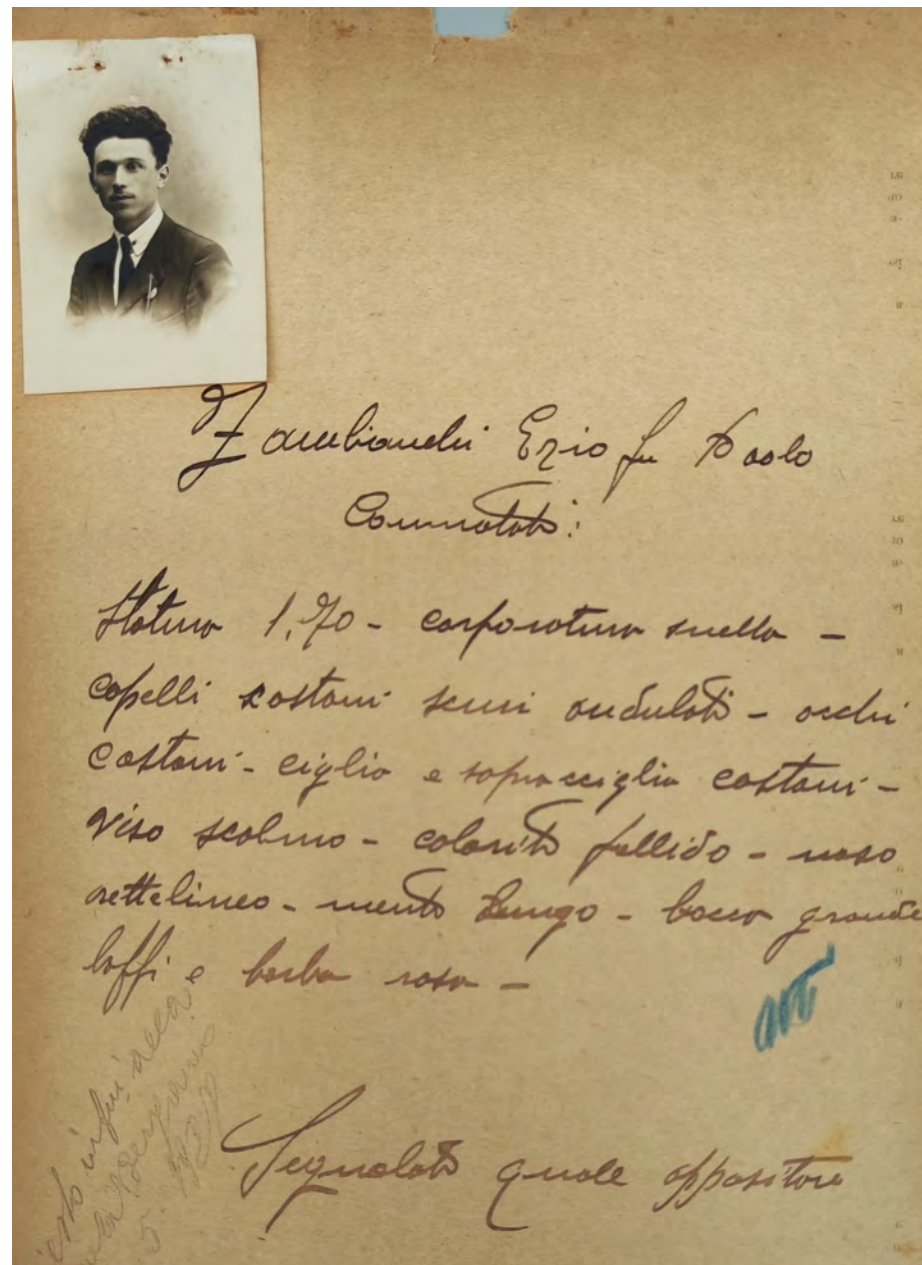 Zambianchi Ezio fu Paolo
Connotati:
Statura 1,70 - corporatura snella -
capelli castani scuri ondulati - occhi
castani - ciglia e sopracciglia castani -
viso scalmo - colorito pallido - naso
rettelineo - mento lungo - bocca grande
baffi e barba rasa -
Segnalato quale oppositore